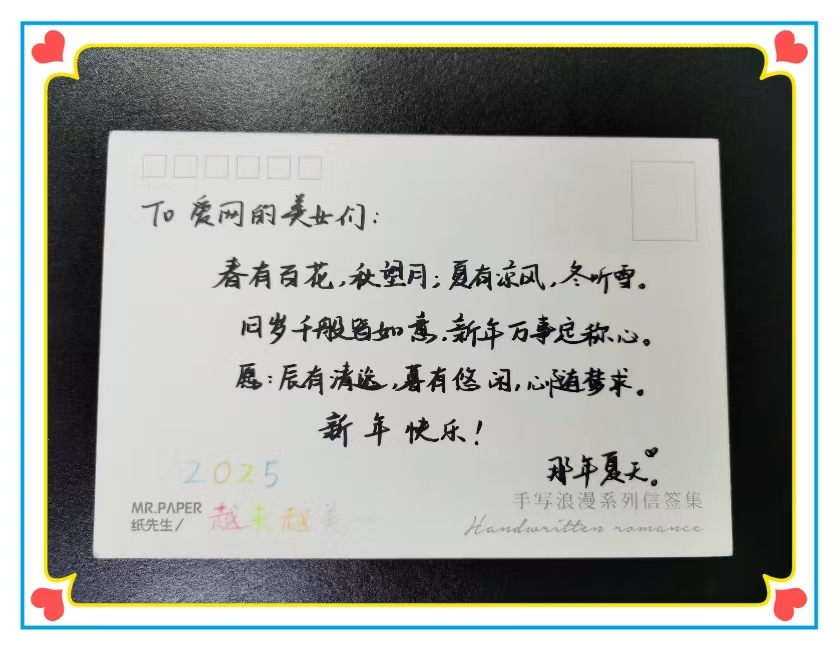 To 爱网的美女们:
春有百花,秋望月;夏有凉风,冬听雪。
旧岁千般皆如意,新年万事定称心。
愿:辰有清逸,暮有悠闲,心随梦求。
新年快乐!
那年夏天。
2025
越来越美
MR.PAPER
纸先生/
手写浪漫系列信签集
Handwritten romance